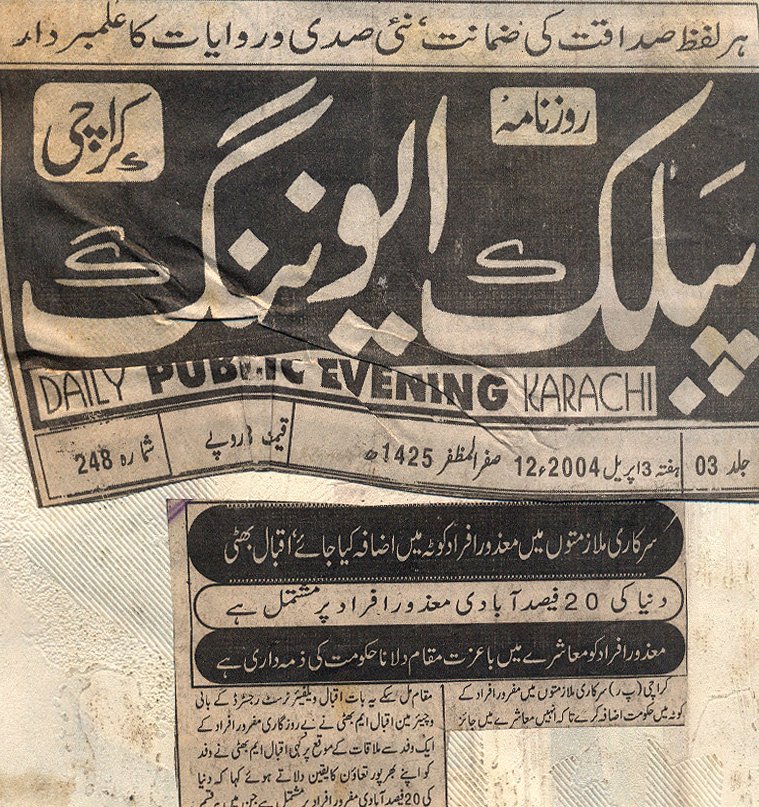 ہر لفظ صداقت کی ضمانت، نئی صدی و روایات کا علمبردار
روزنامہ
پبلک ایوننگ
کراچی
DAILY PUBLIC EVENING KARACHI
جلد 03 ہفتہ 3 اپریل 2004ء 12 صفر المظفر 1425ھ قیمت روپے شمارہ 248
سرکاری ملازمتوں میں معذور افراد کوٹہ میں اضافہ کیا جائے، اقبال بھٹی
دنیا کی 20 فیصد آبادی معذور افراد پر مشتمل ہے
معذور افراد کو معاشرے میں باعزت مقام دلانا حکومت کی ذمہ داری ہے
کراچی (پ ر) سرکاری ملازمتوں میں مفرور افراد کے
کوٹہ میں حکومت اضافہ کرے تاکہ انہیں معاشرے میں جائز
مقام مل سکے یہ بات اقبال ویلفیئر ٹرسٹ رجسٹرڈ کے بانی
و چیئرمین اقبال ایم بھٹی نے بے روزگاری مفرور افراد کے
ایک وفد سے ملاقات کے موقع پر کہی اقبال ایم بھٹی نے وفد
کو اپنے بھرپور تعاون کا یقین دلاتے ہوئے کہا کہ دنیا
کی 20 فیصد آبادی مفرور افراد پر مشتمل ہے جن میں